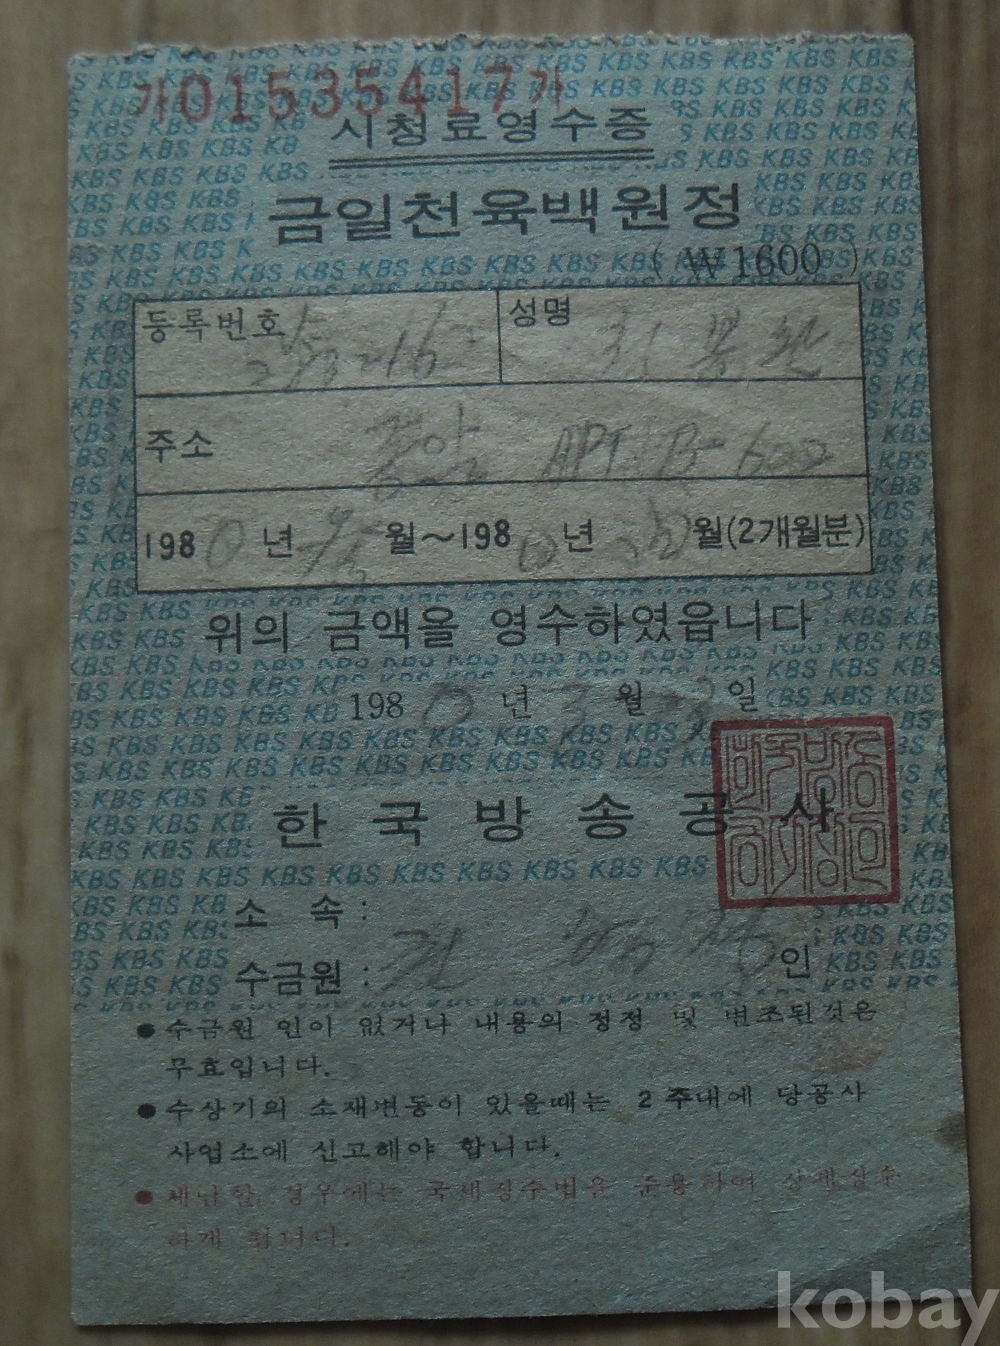 가01535417가
시청료영수증
금일천육백원정
(₩1600)
등록번호
성명
주소 중앙 APT B-602
1980년 월~198 년 월(2개월분)
위의 금액을 영수하였읍니다
1980년 3월 일
한국방송공사
소 속:
수금원: 인
●수금원 인이 없거나 내용의 정정 및 변조된것은
무효입니다.
●수상기의 소재변동이 있을때는 2주내에 당공사
사업소에 신고해야 합니다.
●체납할 경우에는 국세징수법을 준용하여 강제징수
하게 됩니다.
kobay